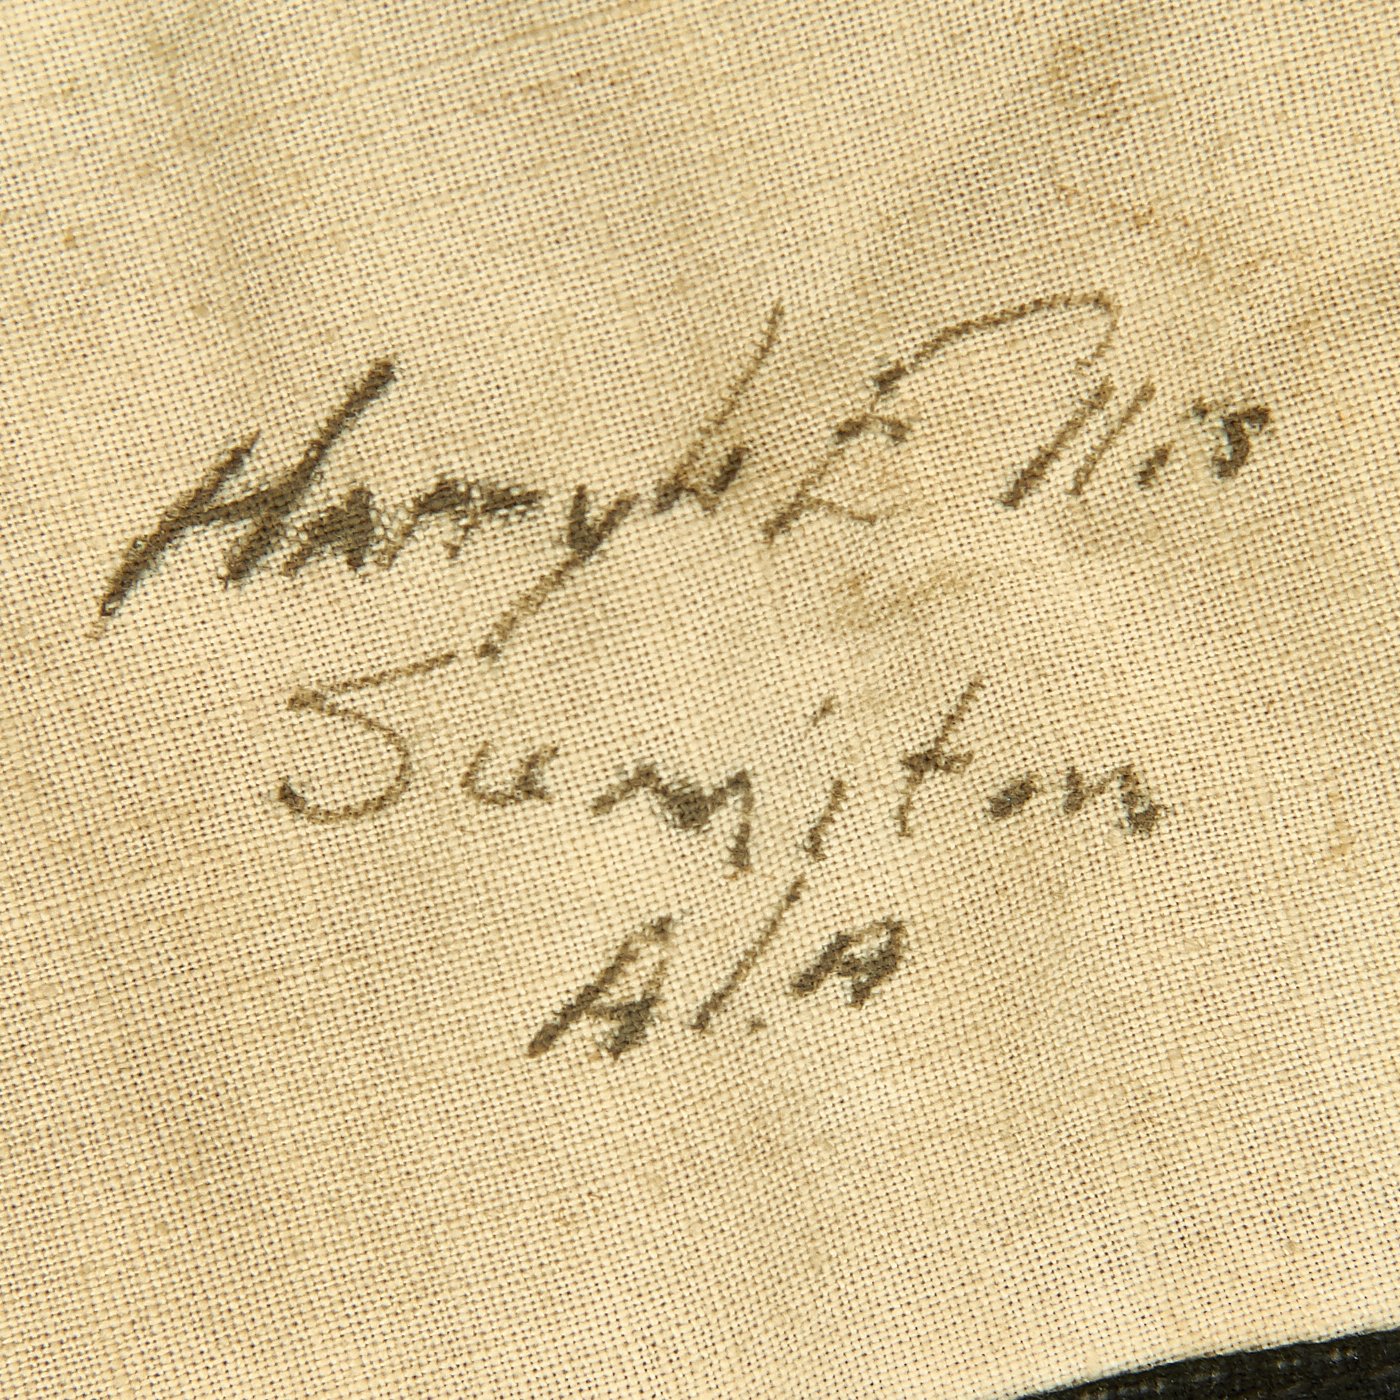 Harry L Ellis
Sumiton
Ala